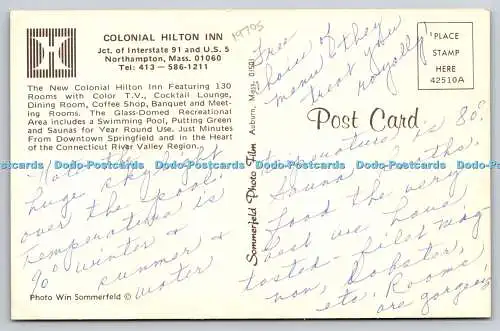 COLONIAL HILTON INN
Jct. of Interstate 91 and U.S. 5
Northampton, Mass. 01060
Tel: 413 - 586-1211
The New Colonial Hilton Inn Featuring 130
Rooms with Color T.V., Cocktail Lounge,
Dining Room, Coffee Shop, Banquet and Meet-
ing Rooms. The Glass-Domed Recreational
Area includes a Swimming Pool, Putting Green
and Saunas for Year Round Use. Just Minutes
From Downtown Springfield and in the Heart
of the Connecticut River Valley Region.
Note the
huge skylight
over the pool.
Temperature is
90° winter &
summer &
water
Photo Win Sommerfeld ©
1970s
Sommerfeld Photo Film Auburn, Mass. 01501
Free
choice of
menu & they
treat you
royally!
PLACE
STAMP
HERE
42510A
Post Card
temperature is 80°.
Sauna baths.
Food the very
best we have
tasted - filet mig-
non, Lobster,
etc. Rooms
are gorgeous
Dodo-Postcards Dodo-Postcards Dodo-Postcards Dodo-Postcards Dodo-Postcards Dodo-Postcards